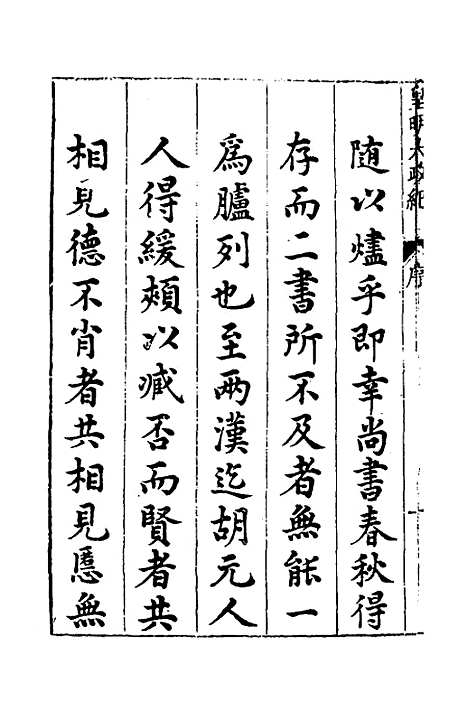 皇明大政紀 序
随以燼乎即幸尚書春秋得
存而二書所不及者無能一
爲臚列也至兩漢迄胡元人
人得緩頰以臧否而賢者共
相見德不肖者共相見慝無